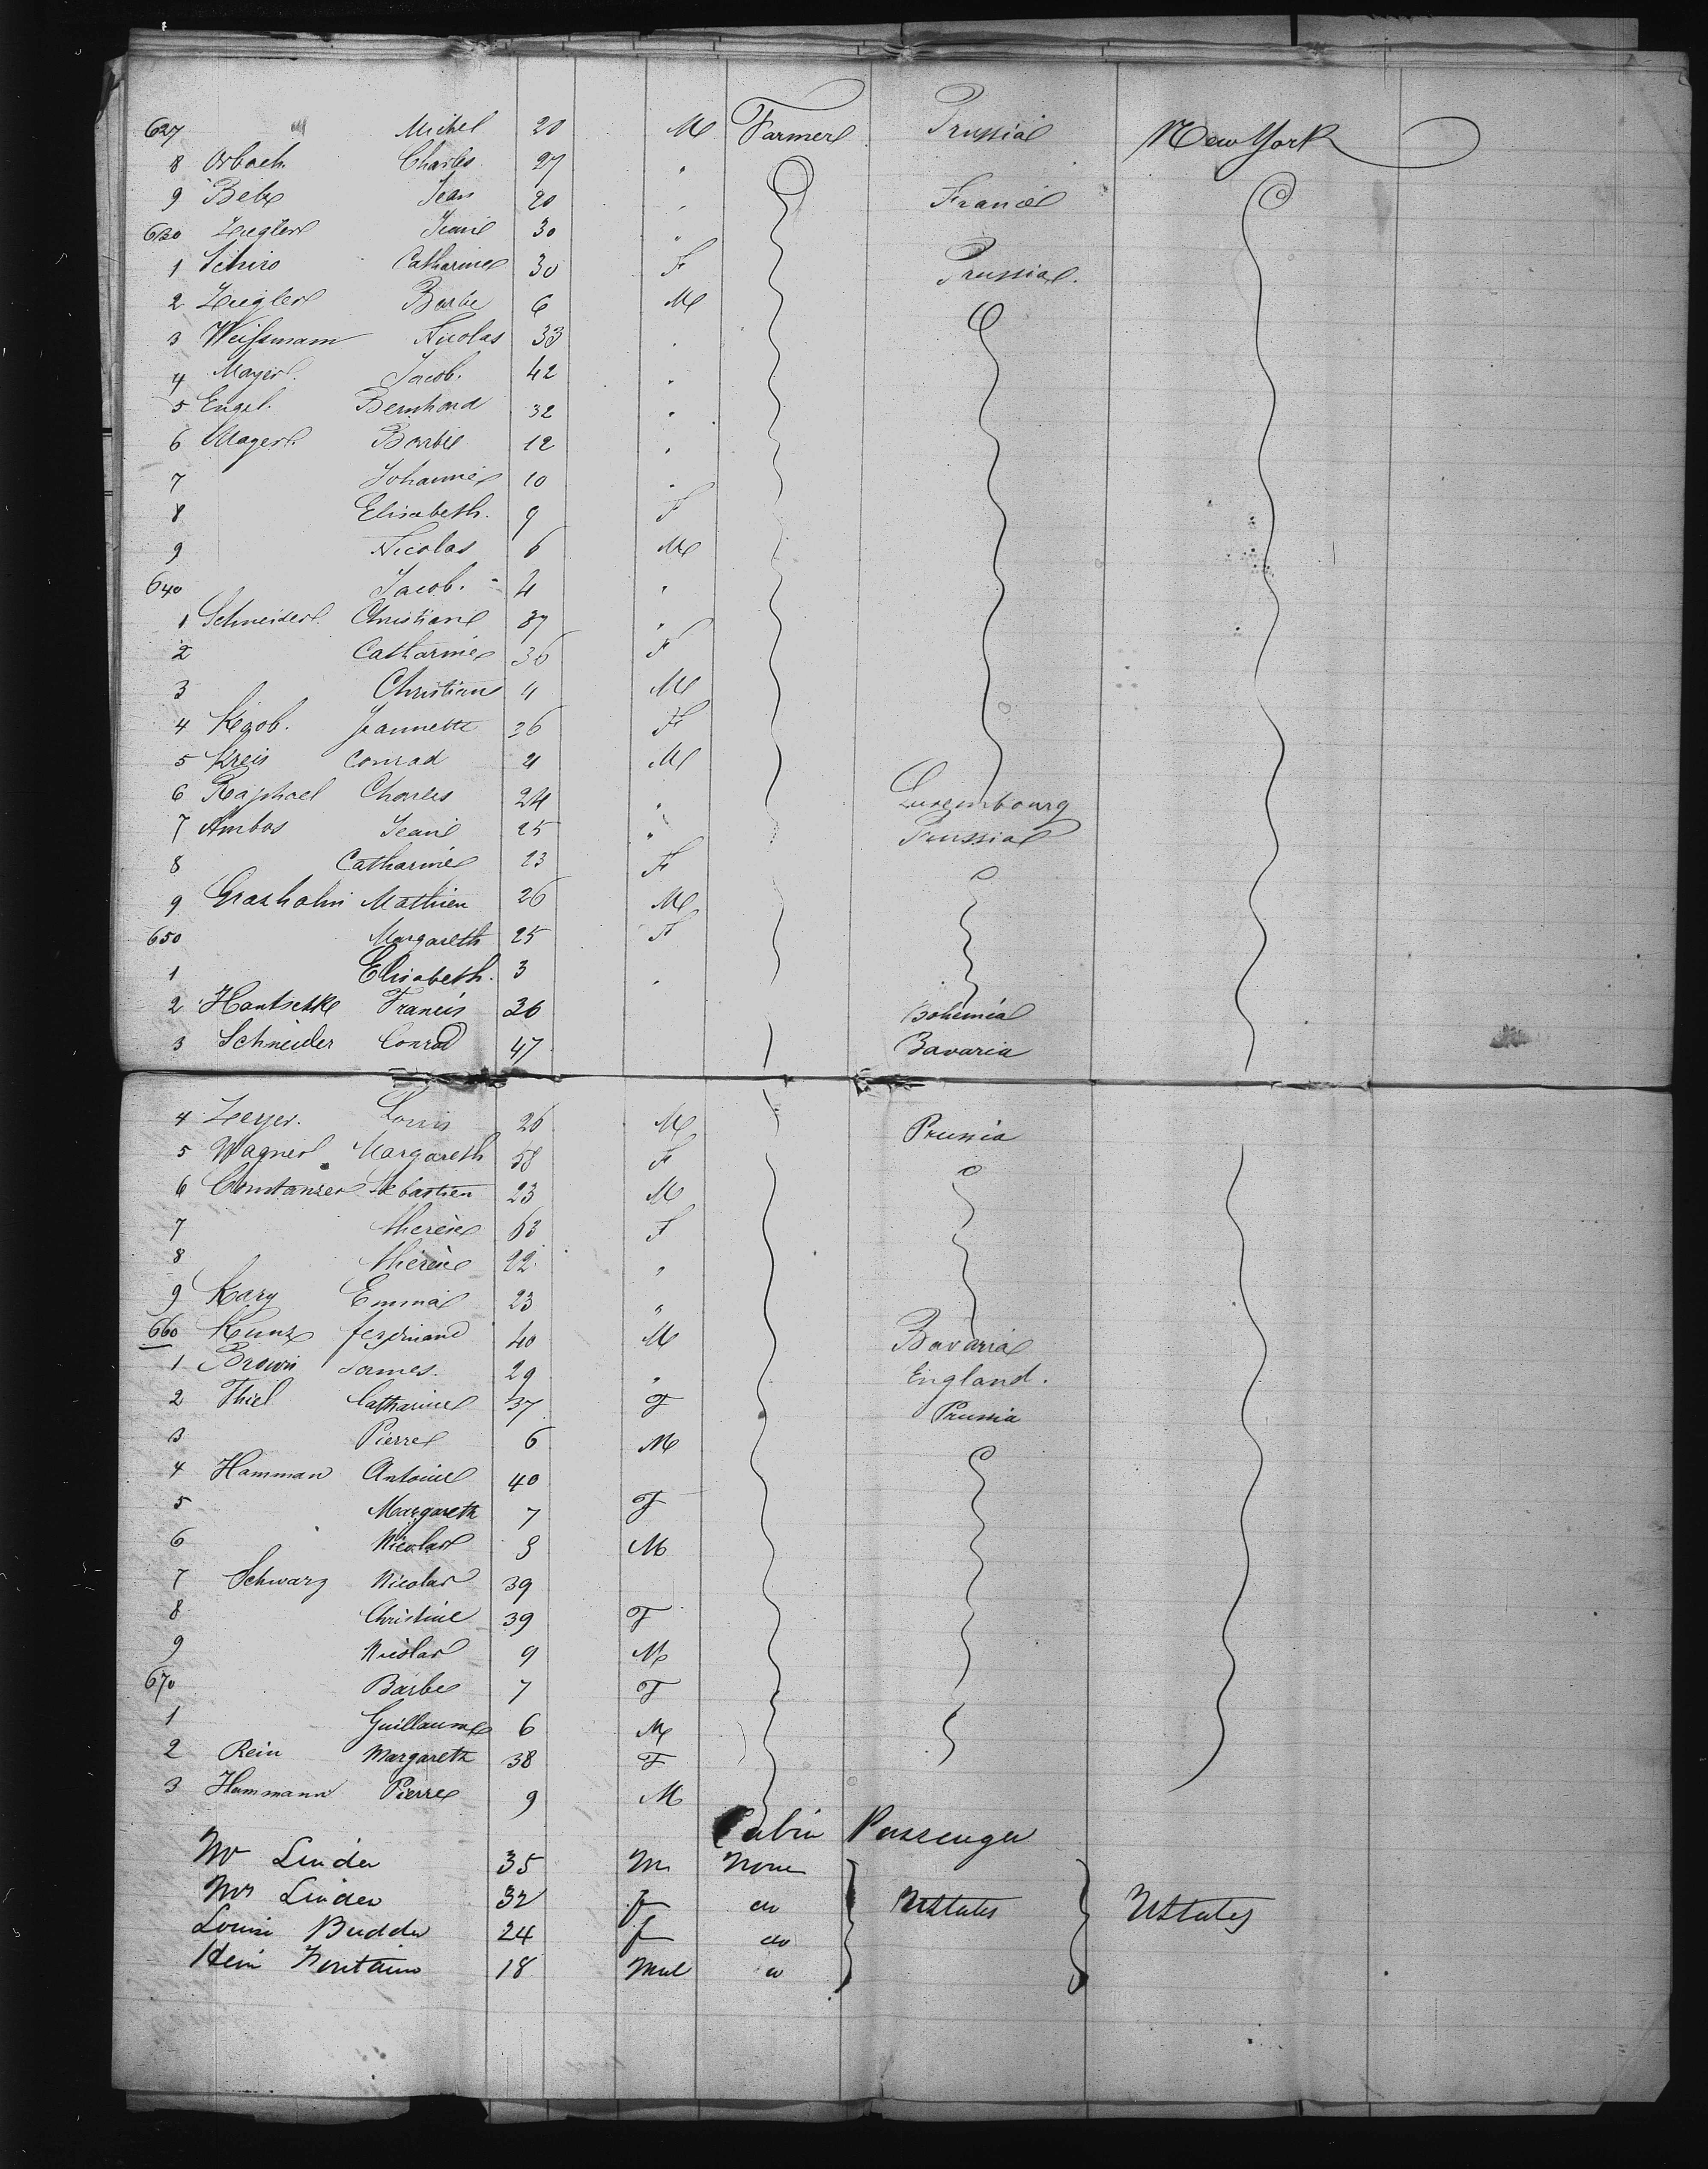 627 " Michel 20 M Farmer Prussia New York
8 Orbach Charles 27 "
9 Belx Jean 20 " France
630 Ziegler Jean 30 "
1 Schiro Catharine 30 F Prussia.
2 Ziegler Barbe 6 M
3 Weissmann Nicolas 33 "
4 Mayer. Jacob. 42 "
5 Engel. Bernhard 32 "
6 Mayer. Barbe 12 "
7 Johannes 10 "
8 Elisabeth. 9 F
9 Nicolas 6 M
640 Jacob. 4 "
1 Schneider. Christian 37 "
2 Catharine 36 F
3 Christian 4 M
4 Kgob. Jeannette 26 F
5 Kreis Conrad 21 M
6 Raphael Charles 24 " Luxembourg
7 Ambos Jean 25 " Prussia
8 Catharine 23 F
9 Grasholm Mathieu 26 M
650 Margareth 25 F
1 Elisabeth. 3 "
2 Hantschke Francis 36 Bohemia
3 Schneider Conrad 47 Bavaria
4 Zeyer. Louis 26 M Prussia
5 Wagner Margareth 58 F
6 Constanzer Sebastien 23 M
7 therèse 63 F
8 therèse 22 "
9 Kary Emma 23 "
660 Kunz ferdinand 40 M Bavaria
1 Brown James. 29 " England.
2 Thiel Catharine 37 F Prussia
3 Pierre 6 M
4 Hamman Antoine 40
5 Margareth 7 F
6 Nicolas 3 M
7 Schwarz Nicolas 39
8 Christine 39 F
9 Nicolas 9 M
670 Barbe 7 F
1 Guillaume 6 M
2 Rein Margareth 38 F
3 Hammann Pierre 9 M
Cabin Passenger
Mr Linden 35 M None
Mrs Linden 32 f do UStates UStates
Louise Budde 24 f do
Fontaine 18 do